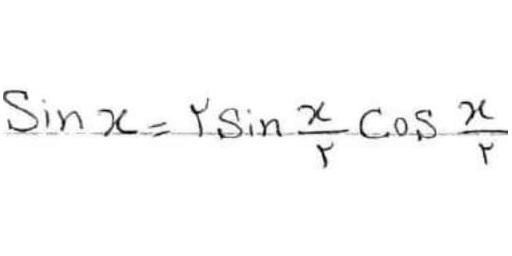 Sin x = ۲ Sin x/۲ Cos x/۲